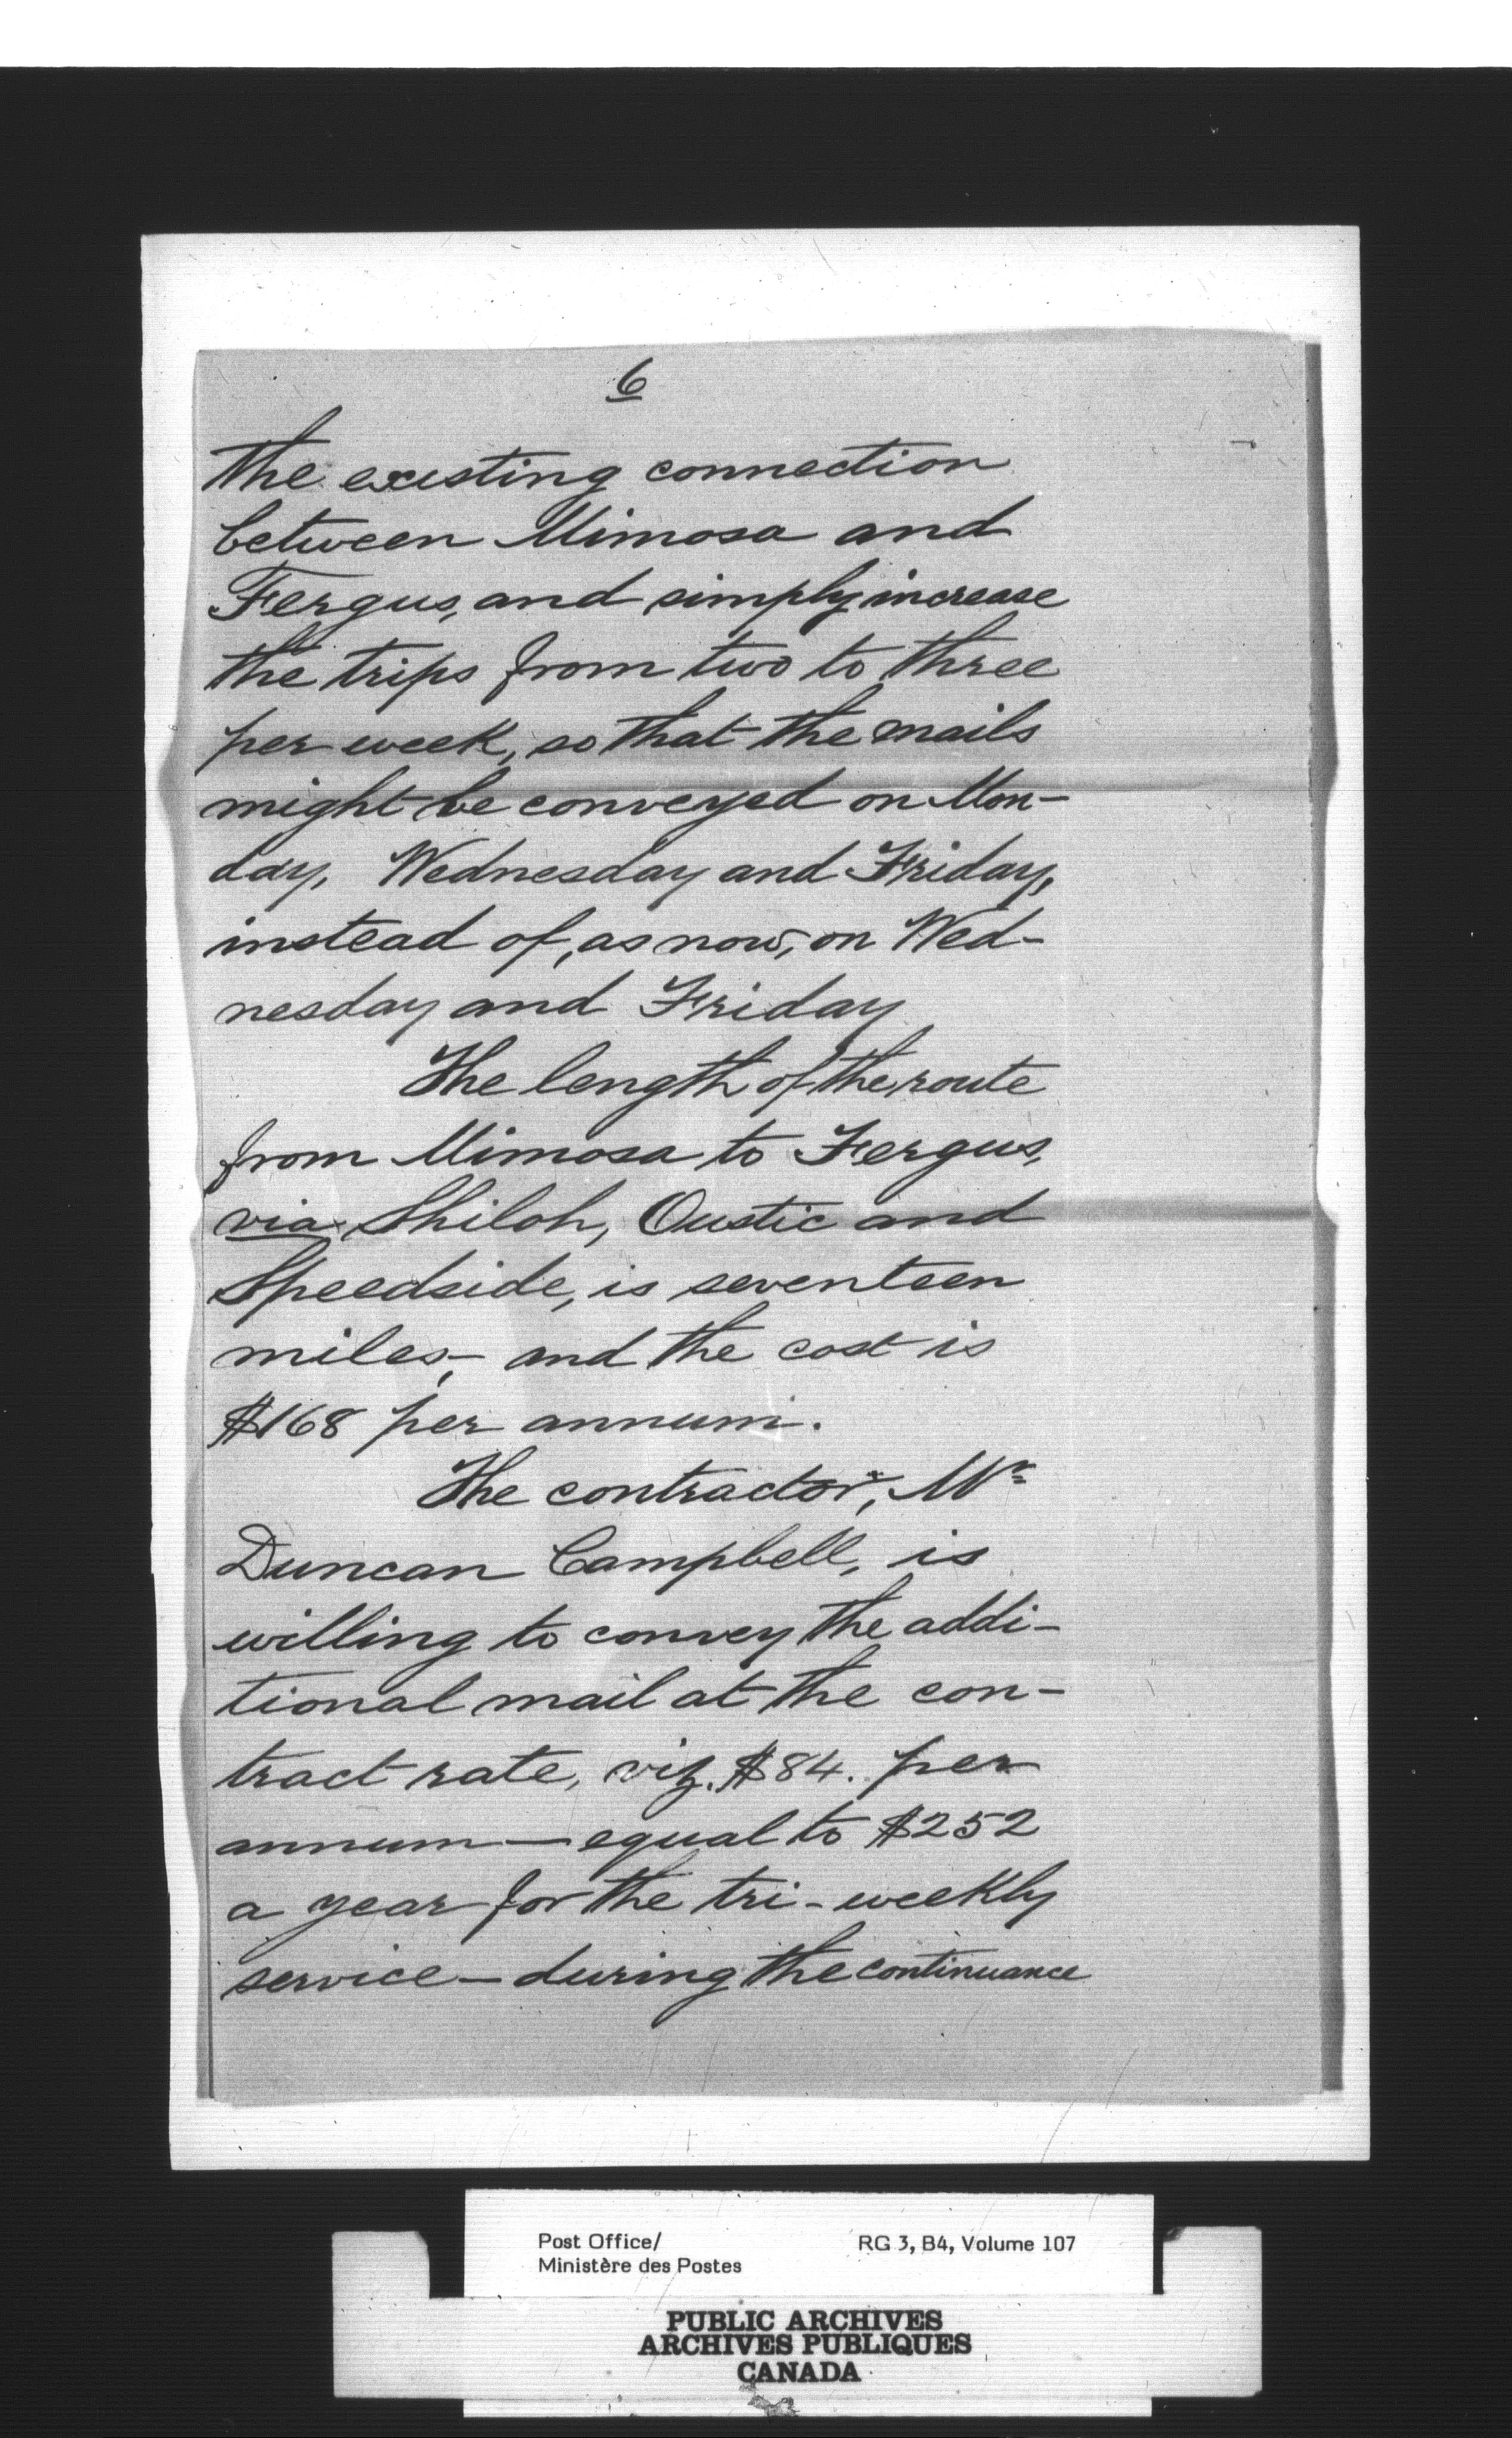 6
the existing connection
between Mimosa and
Fergus, and simply increase
the trips from two to three
per week, so that the mails
might be conveyed on Mon-
day, Wednesday and Friday,
instead of, as now, on Wed-
nesday and Friday
The length of the route
from Mimosa to Fergus,
via Shiloh, Oustic and
Speedside, is seventeen
miles, and the cost is
$168 per annum.
The contractor, Mr
Duncan Campbell, is
willing to convey the addi-
tional mail at the con-
tract rate, viz. $84. per
annum — equal to $252
a year for the tri-weekly
service — during the continuance
Post Office/
Ministère des Postes
RG 3, B4, Volume 107
PUBLIC ARCHIVES
ARCHIVES PUBLIQUES
CANADA